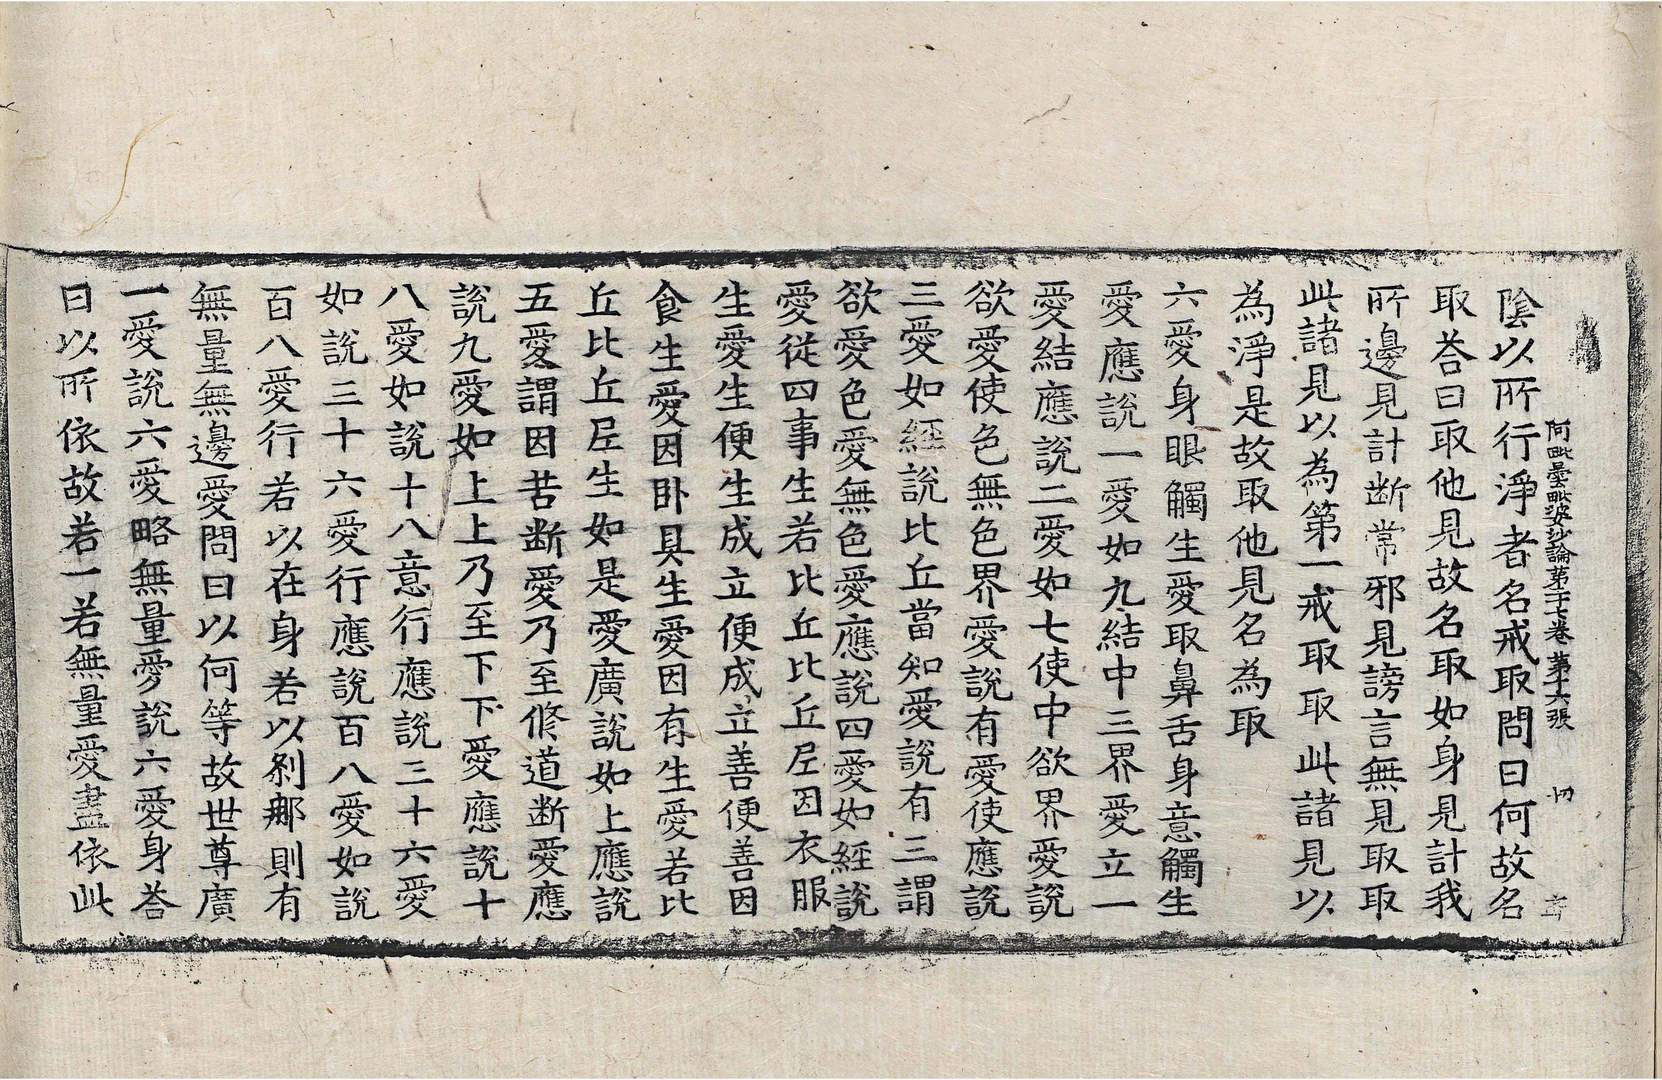 阿毗曇毗婆沙論第二十七卷 第十六張 切
陰以所行淨者名戒取問曰何故名
取荅曰取他見故名取如身見計我
所邊見計断常邪見謗言無見取取
此諸見以為第一戒取取此諸見以
為淨是故取他見名為取
六愛身眼觸生愛取鼻舌身意觸生
愛應說一愛如九結中三界愛立一
愛結應說二愛如七使中欲界愛說
欲愛使色無色界愛說有愛使應說
三愛如經說比丘當知愛說有三謂
欲愛色愛無色愛應說四愛如經說
愛從四事生若比丘比丘尼因衣服
生愛生便生成立便成立善便善因
食生愛因卧具生愛因有生愛若比
丘比丘尼生如是愛廣說如上應說
五愛謂因苦断愛乃至修道断愛應
說九愛如上上乃至下下愛應說十
八愛如說十八意行應說三十六愛
如說三十六愛行應說百八愛如說
百八愛行若以在身若以刹那則有
無量無邊愛問曰以何等故世尊廣
一愛說六愛略無量愛說六愛身荅
曰以所依故若一若無量愛盡依此